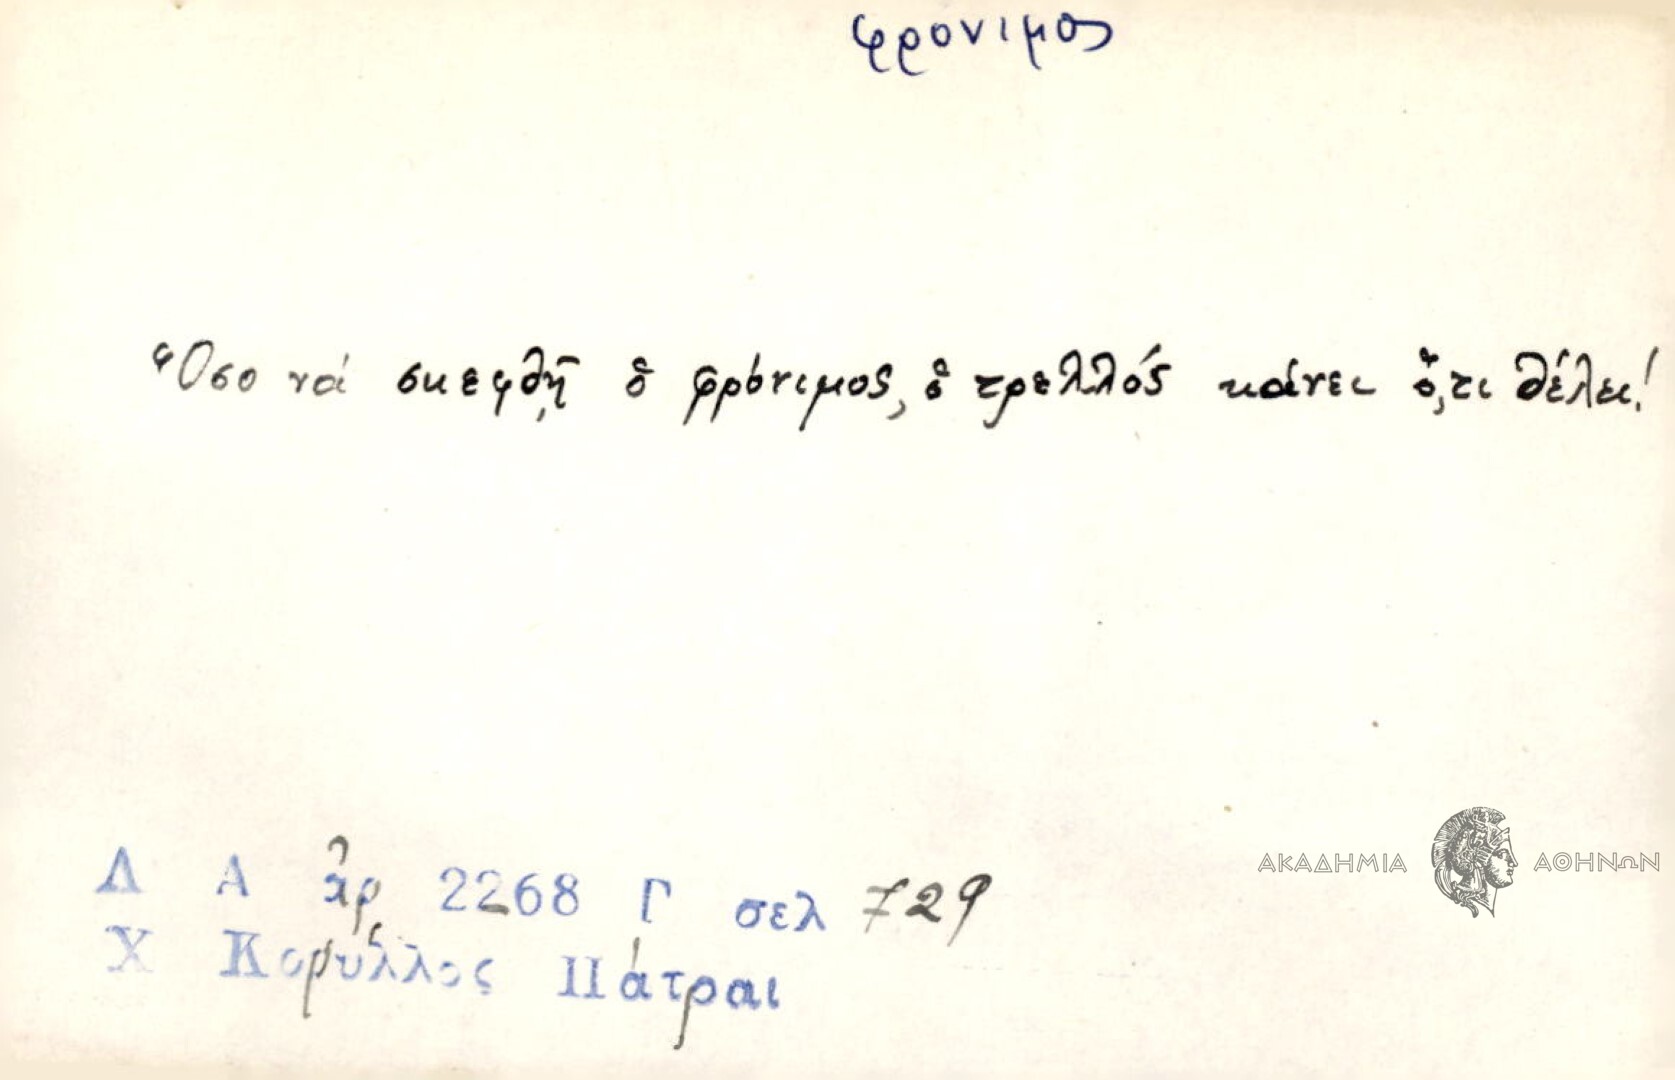 φρονιμος
Ὅσο νά σκεφθῇ ὁ φρόνιμος, ὁ τρελλός κάνει ὅ,τι θέλει!
Λ Α ἀρ 2268 Γ σελ 729
Χ Κορύλλος Πάτραι
ΑΚΑΔΗΜΙΑ ΑΘΗΝΩΝ